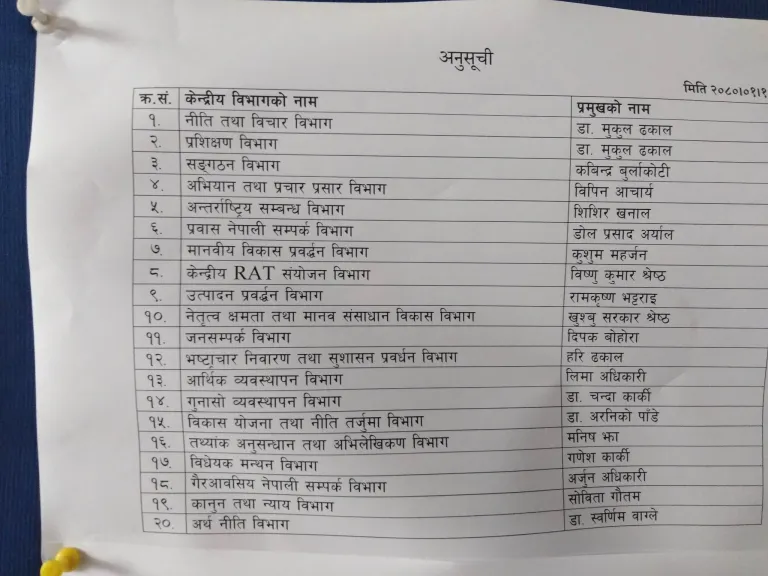 अनुसूची
मिति २०८०।०९।१
क्र.सं. केन्द्रीय विभागको नाम प्रमुखको नाम
१. नीति तथा विचार विभाग डा. मुकुल ढकाल
२. प्रशिक्षण विभाग डा. मुकुल ढकाल
३. सङ्गठन विभाग कबिन्द्र बुर्लाकोटी
४. अभियान तथा प्रचार प्रसार विभाग विपिन आचार्य
५. अन्तर्राष्ट्रिय सम्बन्ध विभाग शिशिर खनाल
६. प्रवास नेपाली सम्पर्क विभाग डोल प्रसाद अर्याल
७. मानवीय विकास प्रवर्द्धन विभाग कुशुम महर्जन
८. केन्द्रीय RAT संयोजन विभाग विष्णु कुमार श्रेष्ठ
९. उत्पादन प्रवर्द्धन विभाग रामकृष्ण भट्टराइ
१०. नेतृत्व क्षमता तथा मानव संसाधान विकास विभाग खुश्बु सरकार श्रेष्ठ
११. जनसम्पर्क विभाग दिपक बोहोरा
१२. भष्टाचार निवारण तथा सुशासन प्रवर्धन विभाग हरि ढकाल
१३. आर्थिक व्यवस्थापन विभाग लिमा अधिकारी
१४. गुनासो व्यवस्थापन विभाग डा. चन्दा कार्की
१५. विकास योजना तथा नीति तर्जुमा विभाग डा. अरनिको पाँडे
१६. तथ्यांक अनुसन्धान तथा अभिलेखिकण विभाग मनिष झा
१७. विधेयक मन्थन विभाग गणेश कार्की
१८. गैरआवसिय नेपाली सम्पर्क विभाग अर्जुन अधिकारी
१९. कानुन तथा न्याय विभाग सोविता गौतम
२०. अर्थ नीति विभाग डा. स्वर्णिम वाग्ले